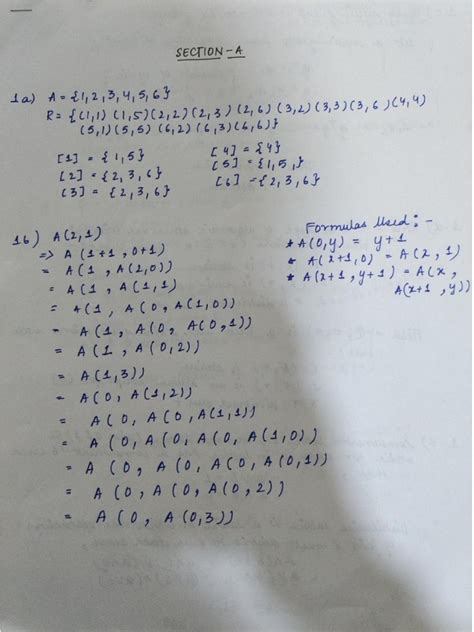 SECTION-A
1a) A = {1,2,3,4,5,6}
R = {(1,1) (1,5)(2,2)(2,3)(2,6)(3,2)(3,3)(3,6)(4,4)
(5,1)(5,5) (6,2)(6,3)(6,6)}
[1] = {1,5}
[2] = {2,3,6}
[3] = {2,3,6}
[4] = {4}
[5] = {1,5,}
[6] = {2,3,6}
1b) A(2,1)
=> A (1+1, 0+1)
= A(1, A(2,0))
= A(1, A(1,1))
= A(1, A(0, A(1,0))
= A(1, A(0, A(0,1))
= A(1, A(0,2))
= A(1,3))
= A(0, A(1,2))
= A(0, A(0, A(1,1))
= A(0, A(0, A(0, A(1,0))
= A (0, A(0, A(0, A(0,1))
= A(0, A(0, A(0,2))
= A(0, A(0,3))
Formulas Used: -
* A(0,y) = y+1
* A(x+1,0) = A(x,1)
* A(x+1, y+1) = A(x,
A(x+1, y))